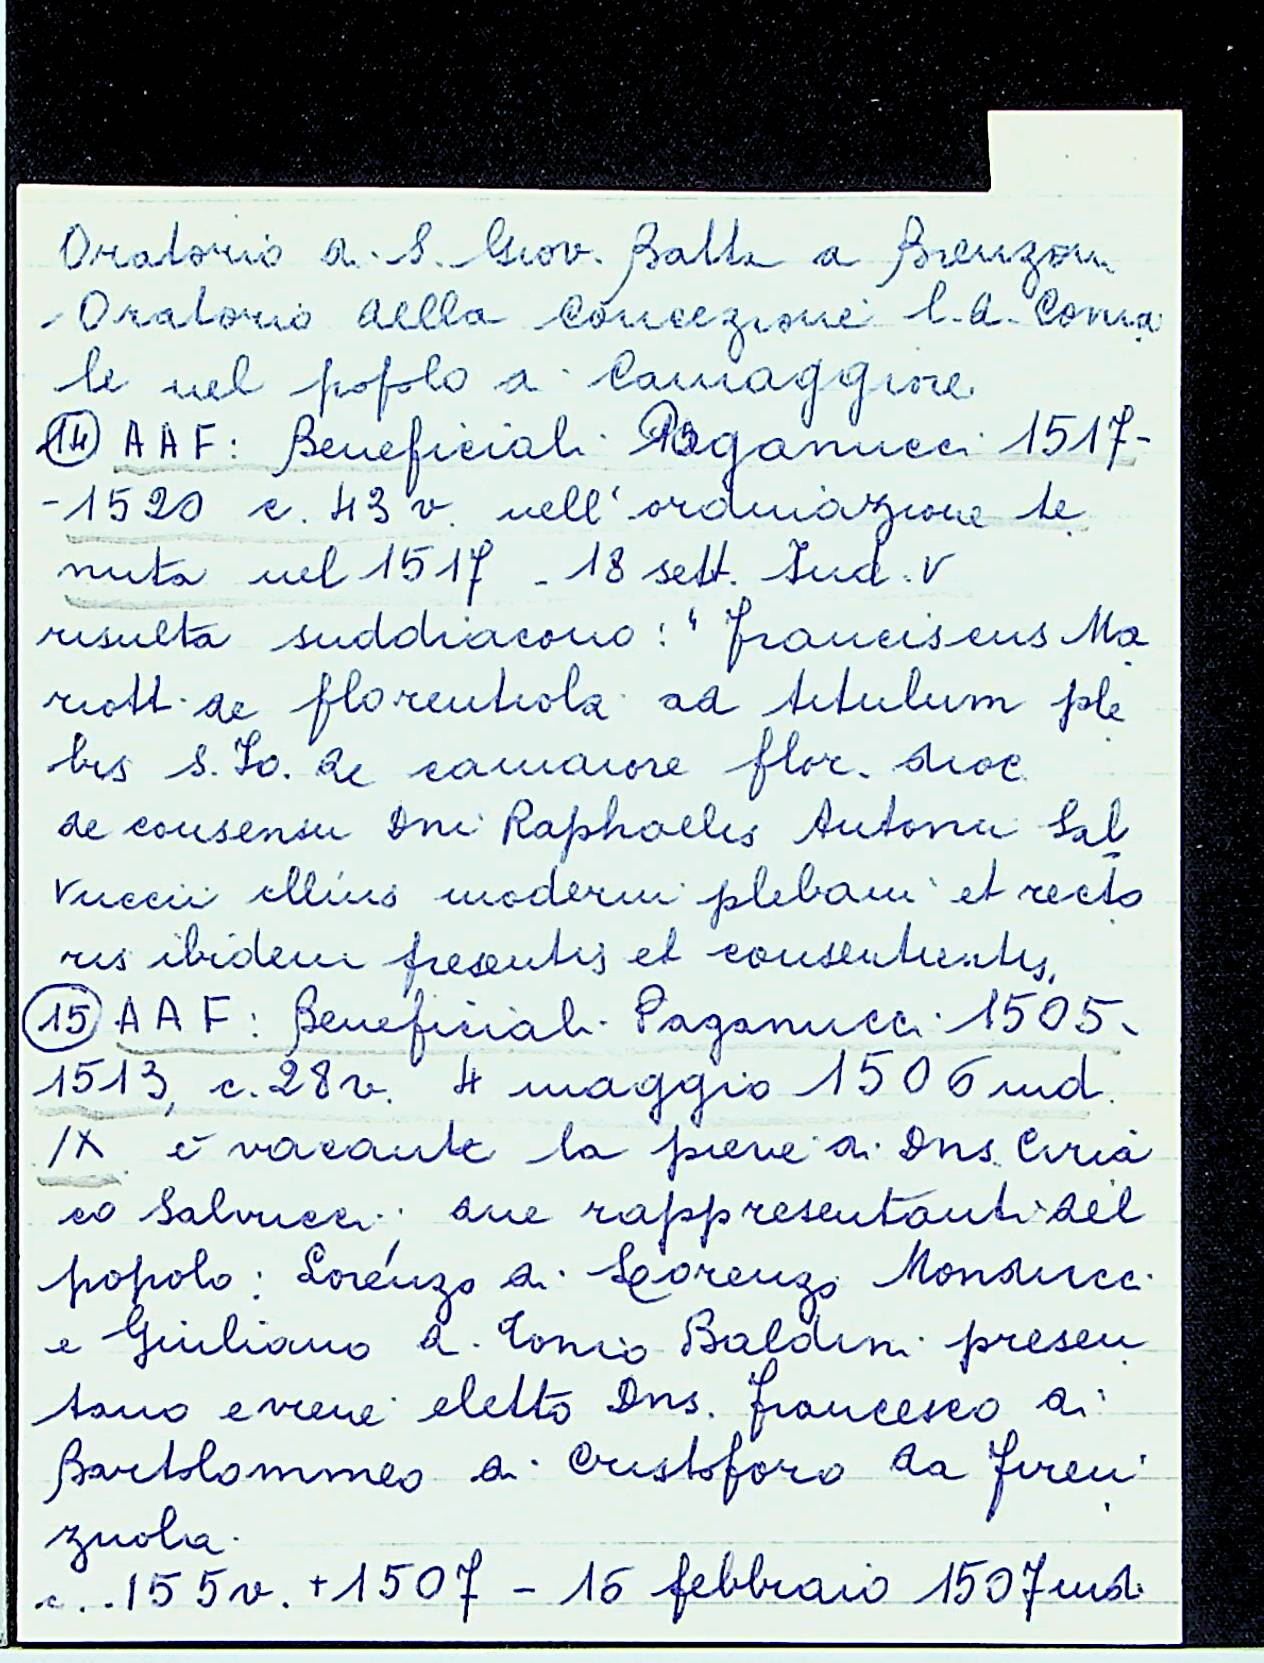 Oratorio di S. Giov. Batta a Brenzoni
Oratorio della Concezione l.d. Coma
le nel popolo di Camaggiore
(14) AAF: Beneficiali Paganucci 1517-
-1520 c. 43 v. nell'ordinazione te
nuta nel 1517 - 18 sett. Ind. V
risulta suddiacono: "Franciscus Ma
riott. de florentiola ad titulum ple
bis S. Jo. de camaiore flor. dioc.
de consensu Dni Raphaelis Antonii Sal
vuccii illius moderni plebani et recto
ris ibidem presentis et consentientis.
(15) AAF: Beneficiali Paganucci 1505-
1513, c. 28v. 4 maggio 1506 ind.
IX è vacante la pieve di Dns. Ciria
co Salvucci; due rappresentanti del
popolo: Lorenzo di Lorenzo Monducci
e Giuliano di Tonio Baldini presen
tano e viene eletto Dns. Francesco di
Bartolommeo di Cristoforo da Firen
zuola.
c. 155v. +1507 - 16 febbraio 1507 ind.